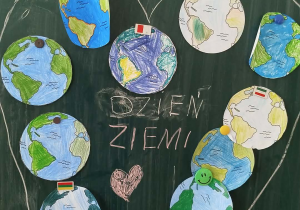 DZIEŃ
ZIEMI